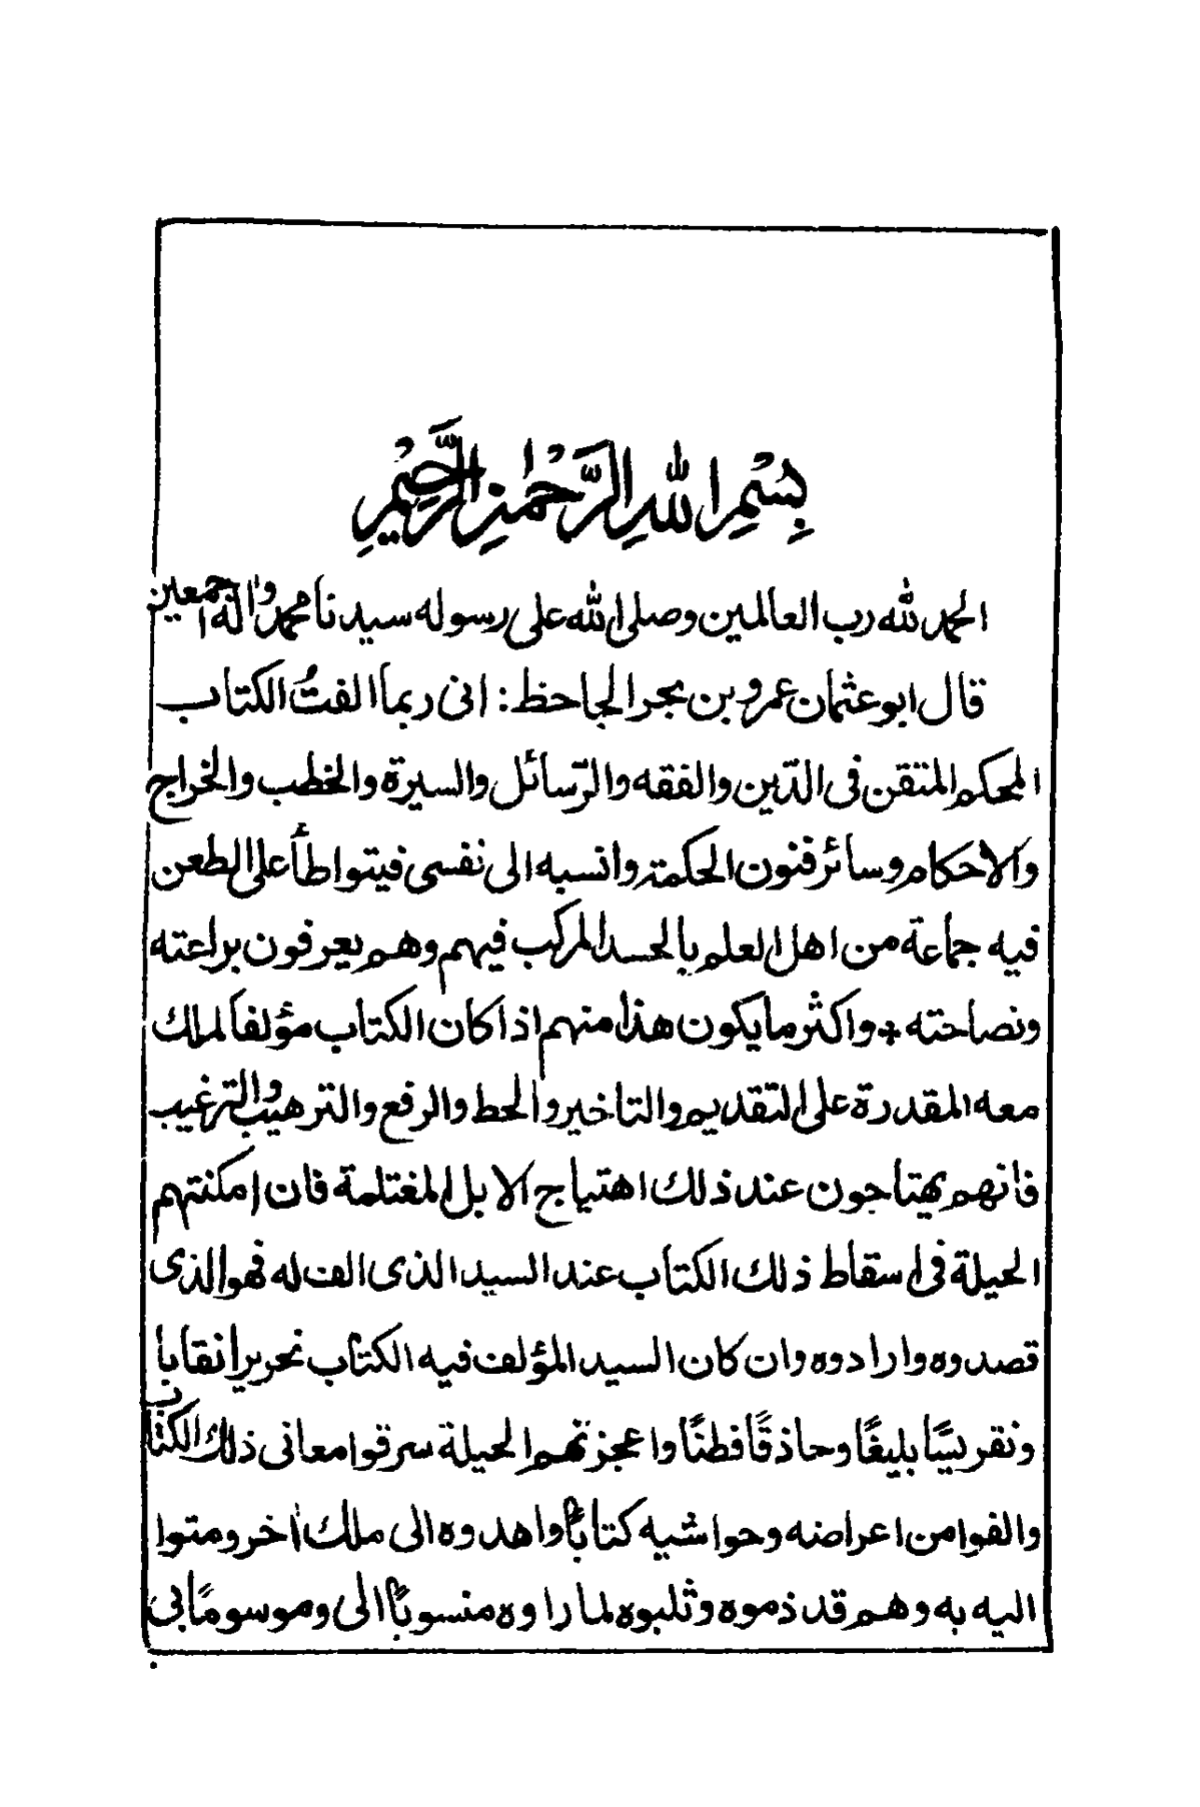 بِسْمِ اللهِ الرَّحْمٰنِ الرَّحِيْمِ
الحمد لله رب العالمين وصلى الله على رسوله سيدنا محمد واٰله اجمعين
قال ابو عثمان عمرو بن بحر الجاحظ: انى ربما الفتُ الكتاب
المحكم المتقن فى الدّين والفقه والرّسائل والسيرة والخطب والخراج
والاحكام وسائر فنون الحكمة وانسبه الى نفسى فيتواطأ على الطعن
فيه جماعة من اهل العلم بالحسد المركب فيهم وهم يعرفون براعته
ونصاحته + واكثر ما يكون هذا منهم اذا كان الكتاب مؤلفا لملك
معه المقدرة على التقديم والتاخير والحط والرفع والترهيب والترغيب
فانهم يهتاجون عند ذلك اهتياج الابل المغتلمة فان امكنتهم
الحيلة فى اسقاط ذلك الكتاب عند السيد الذى الف له فهوالذى
قصدوه وارادوه وان كان السيد المؤلف فيه الكتاب نحريرا نقابا
ونقريسًا بليغًا وحاذقًا فطنًا واعجزتهم الحيلة سرقوا معانى ذلك الكتاب
والفوا من اعراضه وحواشيه كتابًا واهدوه الى ملك اٰخر ومتوا
اليه به وهم قد ذموه وثلبوه لما راوه منسوبًا الى وموسومًا بى